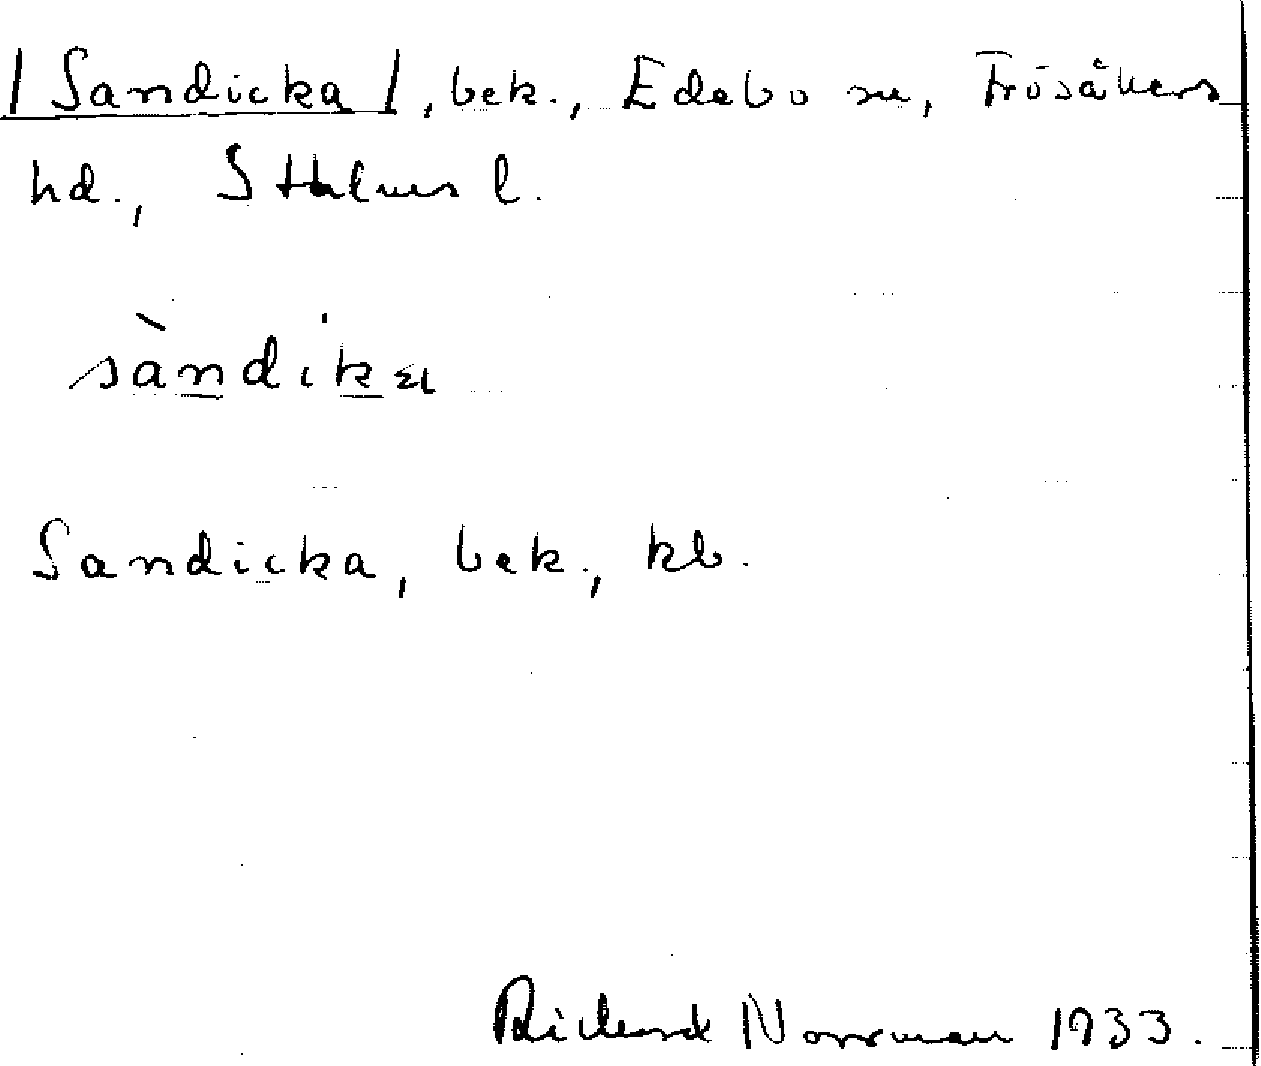 /Sandicka/, bek., Edebo sn, Frösåkers
hd., Sthlms l.
sàndika
Sandicka, bek., kb.
Rickard Norrman 1933.